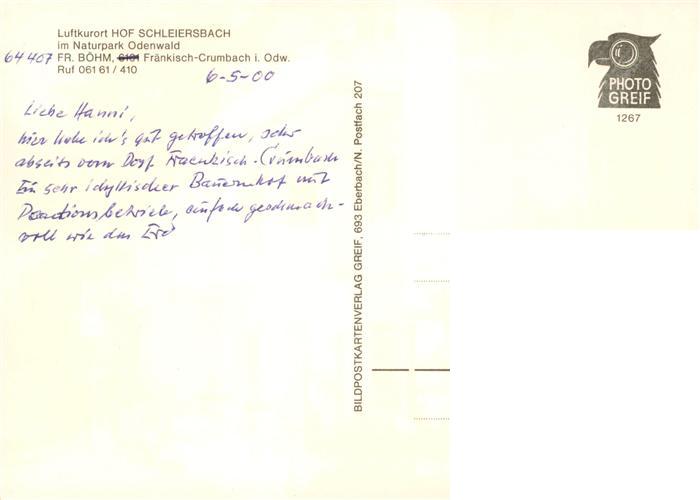 Luftkurort HOF SCHLEIERSBACH
im Naturpark Odenwald
64407 FR. BÖHM, 6101 Fränkisch-Crumbach i. Odw.
Ruf 061 61 / 410
6-5-00
Liebe Hanni,
hier habe ich's gut getroffen, sehr
abseits vom Dorf Fraenkisch-Crumbach
Ein sehr idyllischer Bauernhof mit
Pensionsbetrieb, einfach geschmack-
voll wie das
BILDPOSTKARTENVERLAG GREIF, 693 Eberbach/N. Postfach 207
PHOTO
GREIF
1267